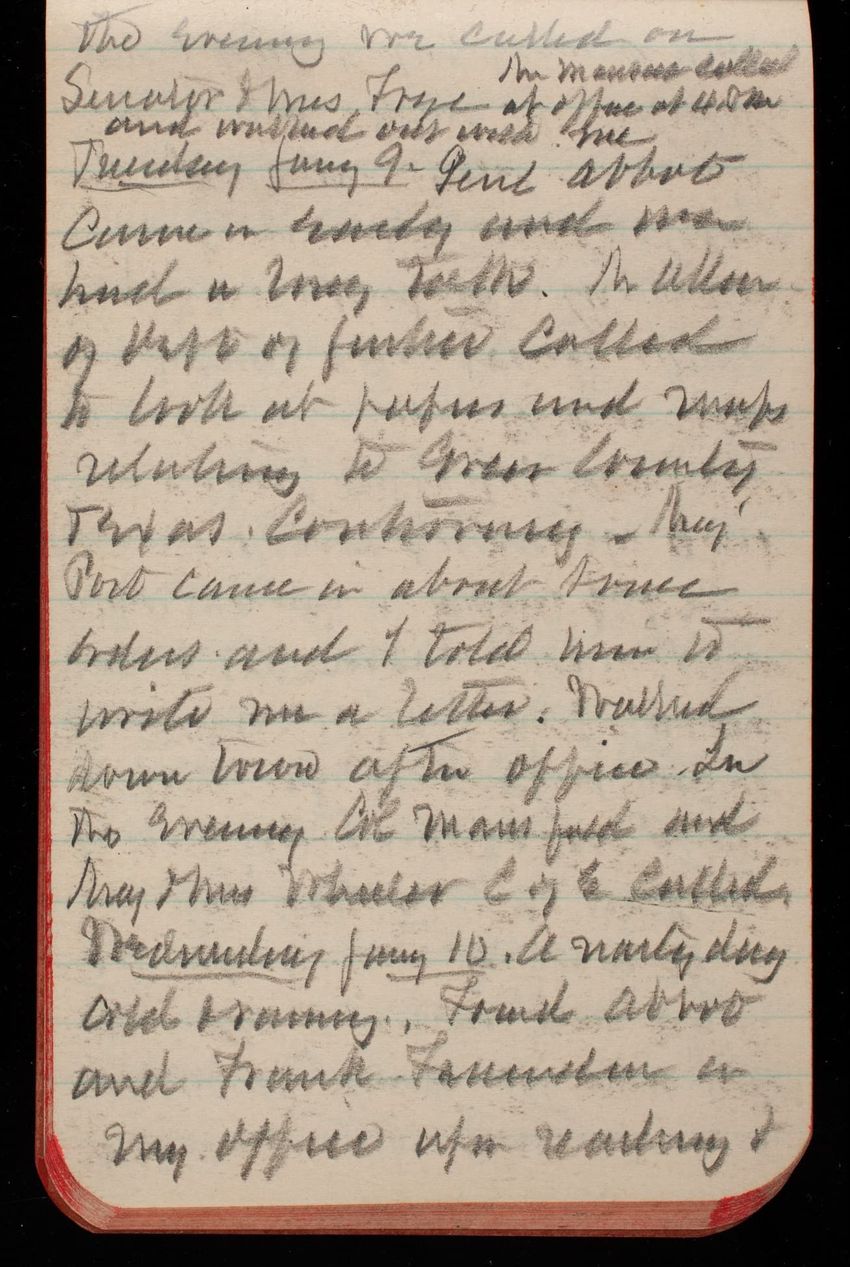 the evening we called on
Senator & Mrs Frye Mr Manson called
at office at 4 P.M.
and walked out with me
Tuesday Jany 9. Genl Abbot
Came in early and we
had a long talk. Mr Allen
of Dept of Justice Called
to look at papers and maps
relating to Greer County
Texas. Controversy - Maj
Post came in about some
orders and I told him to
write me a letter. Walked
down town after office. In
the Evening Col Mansfield and
Maj & Mrs Wheeler C of E Called.
Wednesday Jany 10. A nasty day
cold & raining. Found Abbot
and Frank in
my office upon reaching &